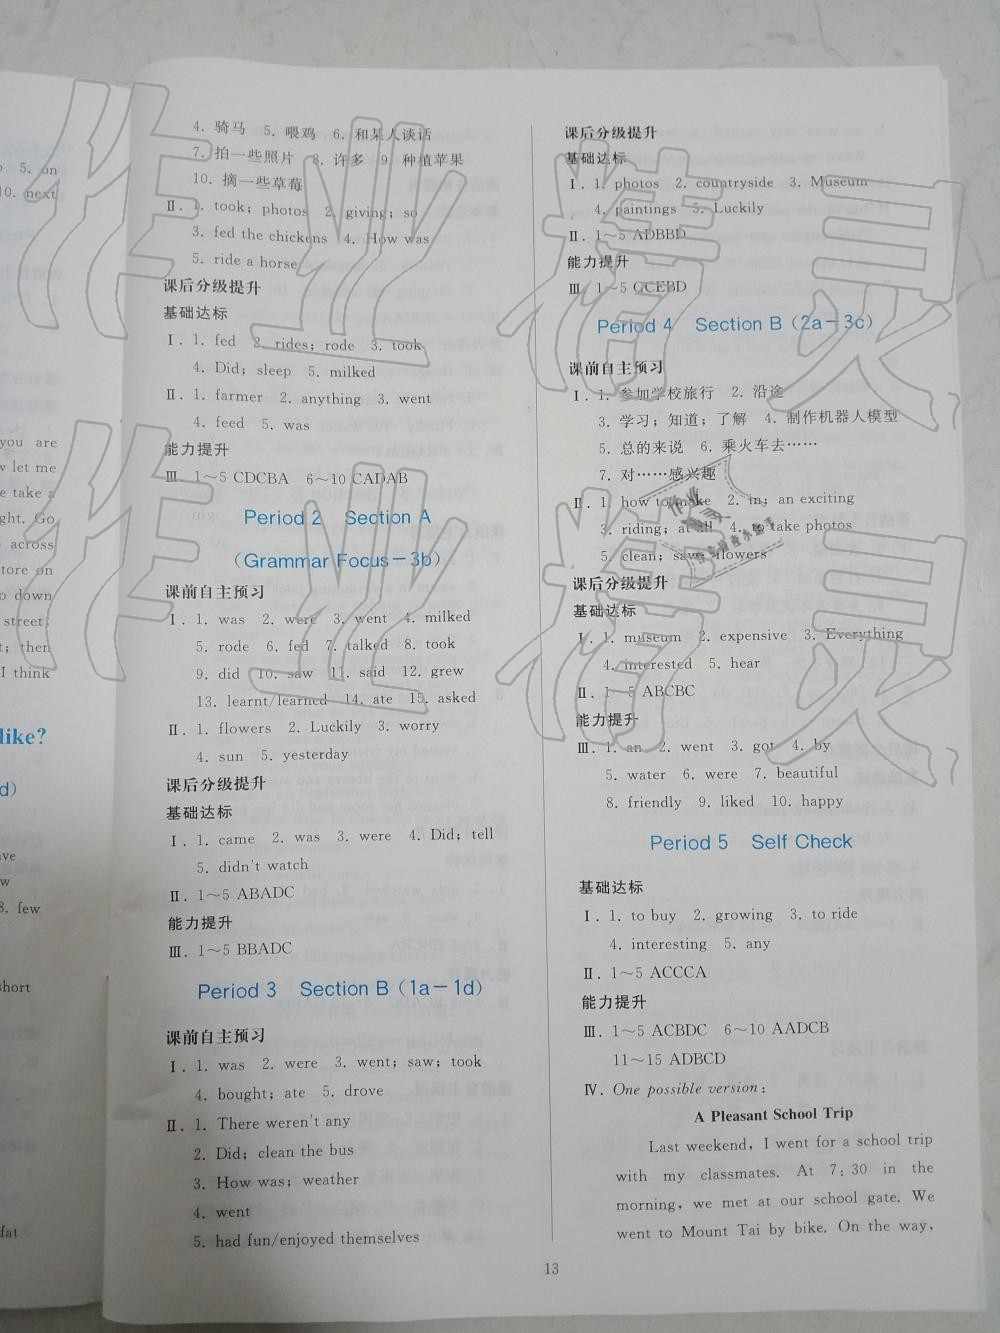 5. on
10. next
you are
let me
take a
ght. Go
across
tore on
down
street,
then
I think
like?
d)
8. few
short
fat
4. 骑马 5. 喂鸡 6. 和某人谈话
7. 拍一些照片 8. 许多 9. 种植苹果
10. 摘一些草莓
Ⅱ. 1. took; photos 2. giving; so
3. fed the chickens 4. How was
5. ride a horse
课后分级提升
基础达标
Ⅰ. 1. fed 2. rides; rode 3. took
4. Did; sleep 5. milked
Ⅱ. 1. farmer 2. anything 3. went
4. feed 5. was
能力提升
Ⅲ. 1～5 CDCBA 6～10 CADAB
Period 2 Section A
(Grammar Focus－3b)
课前自主预习
Ⅰ. 1. was 2. were 3. went 4. milked
5. rode 6. fed 7. talked 8. took
9. did 10. saw 11. said 12. grew
13. learnt/learned 14. ate 15. asked
Ⅱ. 1. flowers 2. Luckily 3. worry
4. sun 5. yesterday
课后分级提升
基础达标
Ⅰ. 1. came 2. was 3. were 4. Did; tell
5. didn't watch
Ⅱ. 1～5 ABADC
能力提升
Ⅲ. 1～5 BBADC
Period 3 Section B (1a－1d)
课前自主预习
Ⅰ. 1. was 2. were 3. went; saw; took
4. bought; ate 5. drove
Ⅱ. 1. There weren't any
2. Did; clean the bus
3. How was; weather
4. went
5. had fun/enjoyed themselves
课后分级提升
基础达标
Ⅰ. 1. photos 2. countryside 3. Museum
4. paintings 5. Luckily
Ⅱ. 1～5 ADBBD
能力提升
Ⅲ. 1～5 CCEBD
Period 4 Section B (2a－3c)
课前自主预习
Ⅰ. 1. 参加学校旅行 2. 沿途
3. 学习; 知道; 了解 4. 制作机器人模型
5. 总的来说 6. 乘火车去……
7. 对……感兴趣
Ⅱ. 1. how to make 2. in; an exciting
3. riding; at all 4. to take photos
5. clean; saw; flowers
课后分级提升
基础达标
Ⅰ. 1. museum 2. expensive 3. Everything
4. interested 5. hear
Ⅱ. 1～5 ABCBC
能力提升
Ⅲ. 1. an 2. went 3. got 4. by
5. water 6. were 7. beautiful
8. friendly 9. liked 10. happy
Period 5 Self Check
基础达标
Ⅰ. 1. to buy 2. growing 3. to ride
4. interesting 5. any
Ⅱ. 1～5 ACCCA
能力提升
Ⅲ. 1～5 ACBDC 6～10 AADCB
11～15 ADBCD
Ⅳ. One possible version:
A Pleasant School Trip
Last weekend, I went for a school trip
with my classmates. At 7:30 in the
morning, we met at our school gate. We
went to Mount Tai by bike. On the way,
13
作业精灵
作业精灵